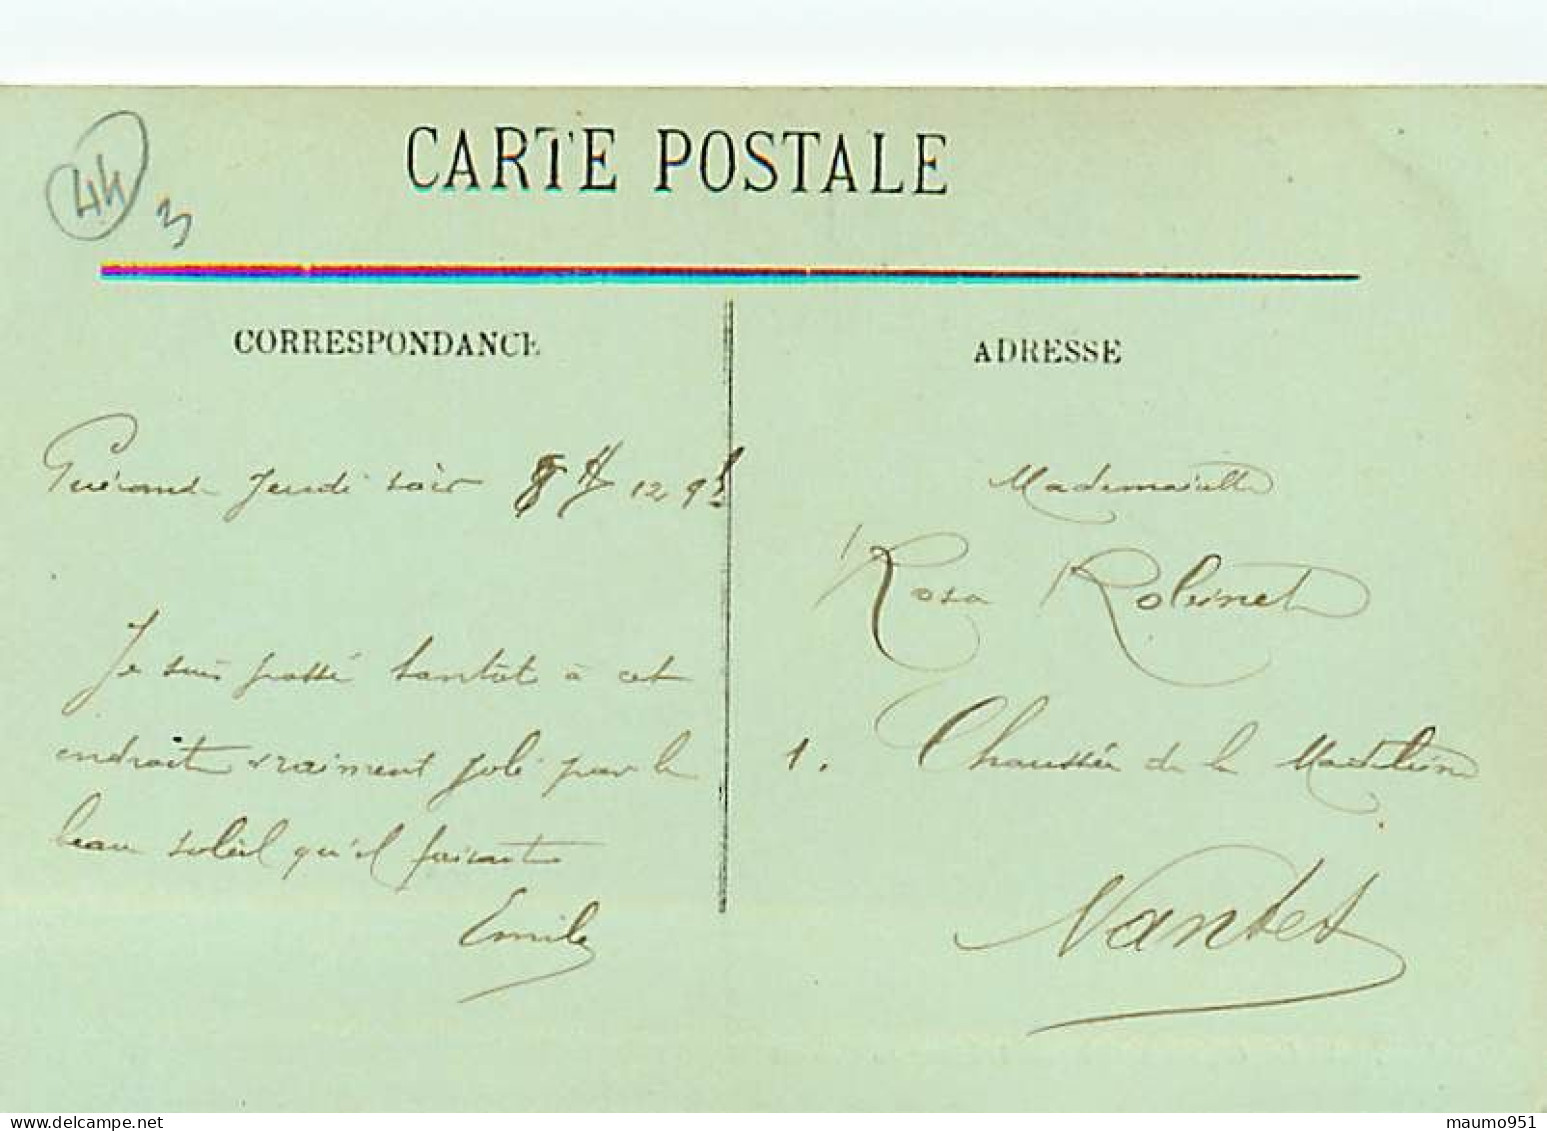 44
3
CARTE POSTALE
CORRESPONDANCE
ADRESSE
Guérande Jeudi soir 12 9h
Je suis passé tantôt à cet
endroit vraiment joli par le
beau soleil qu'il faisait
Emile
Mademoiselle
Rosa Robinet
1. Chaussée de la Madeleine
Nantes
maumo951